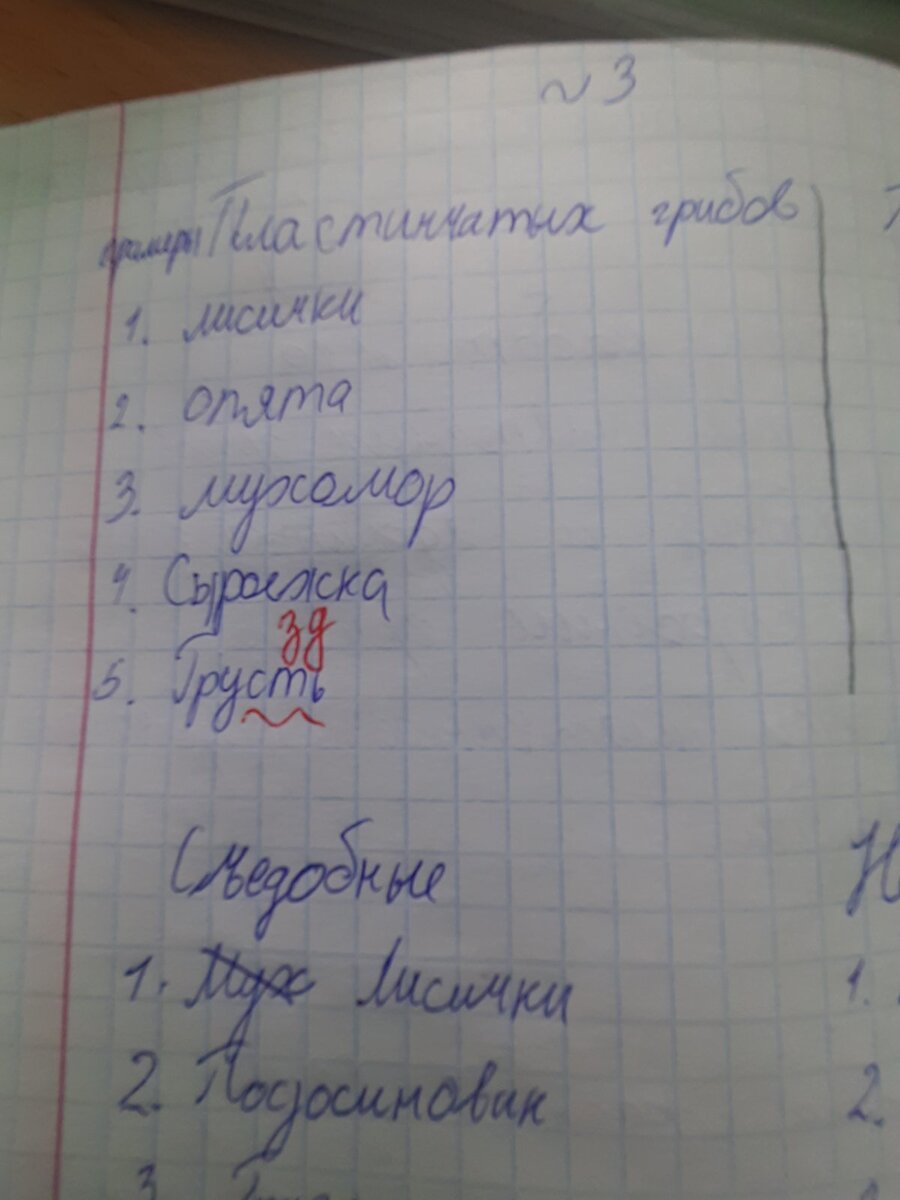 ~ 3
примеры Пластинчатых грибов
1. лисички
2. опята
3. мухомор
4. Сыроежка
зд
5. Грусть
Съедобные
1. Мух Лисички
1.
2. Подосиновик
2.
3